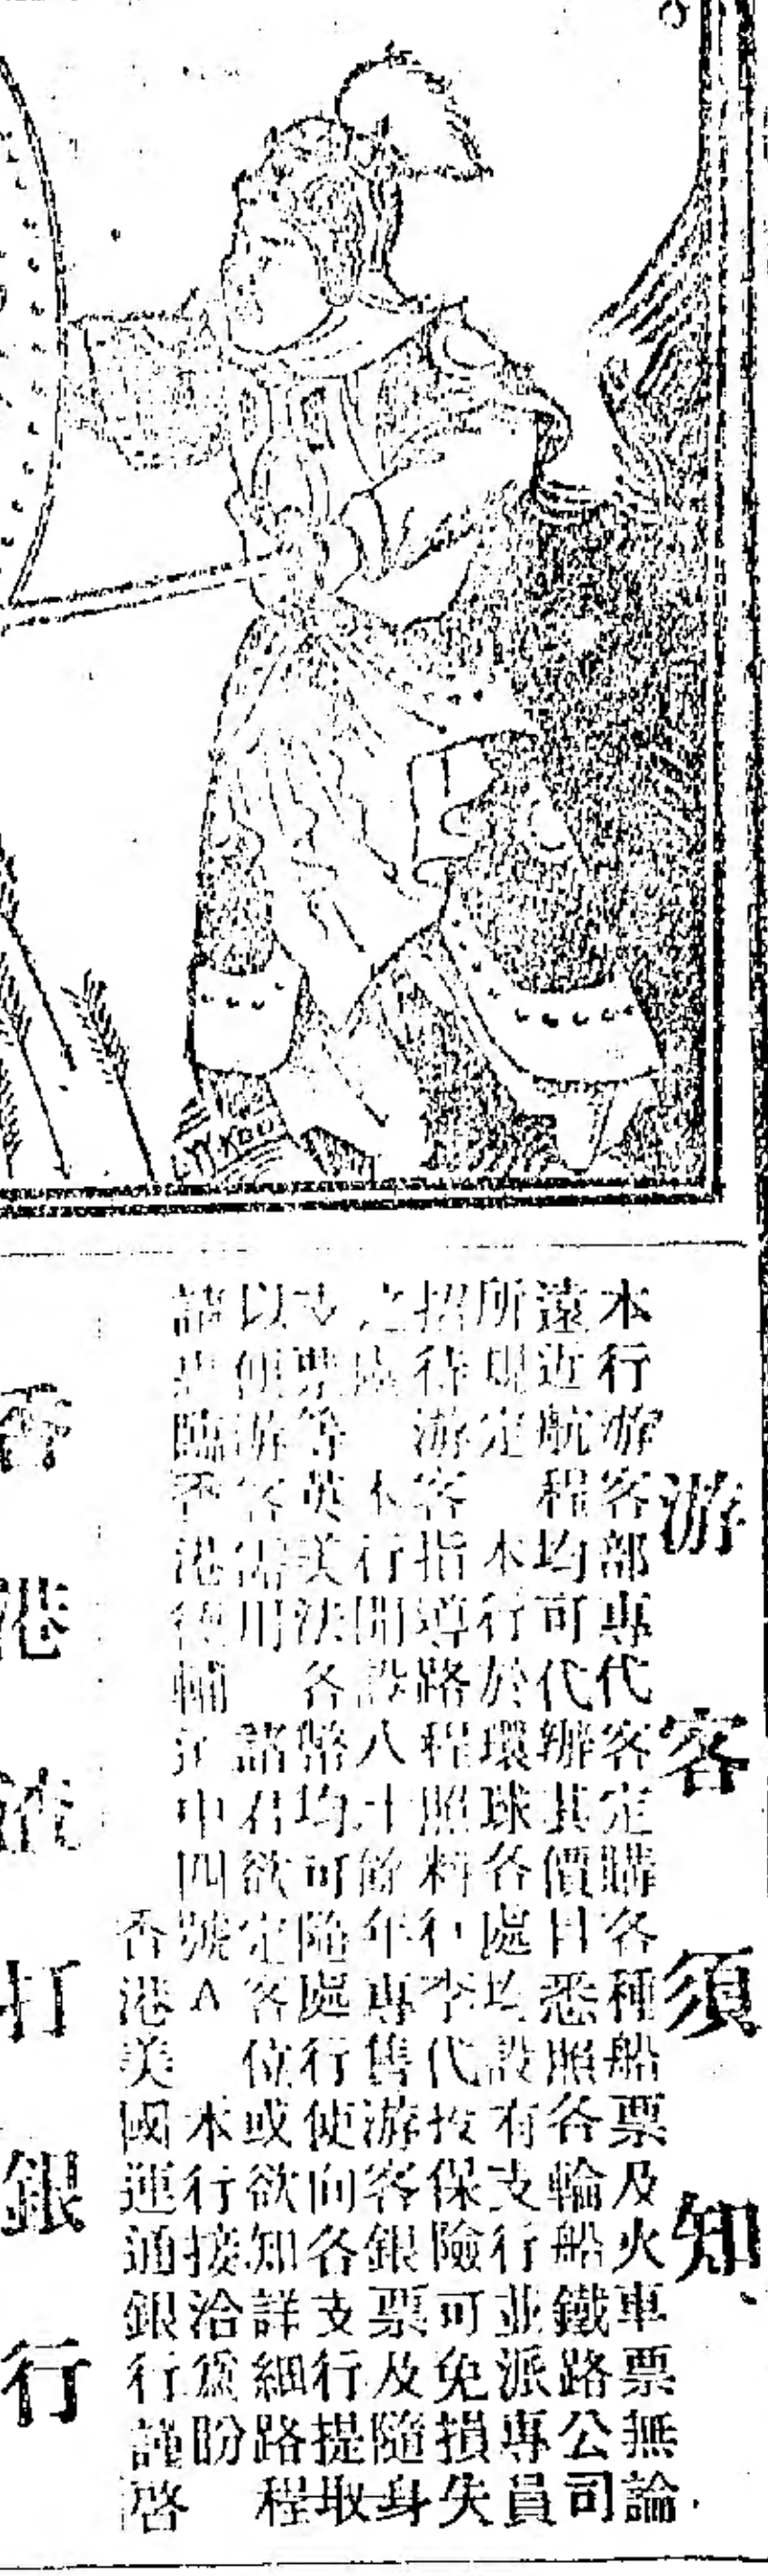 游客須知
本行游客部專代客定購各種船票及火車票無論
遠近航程均可代辦其價目悉照各輪船鐵路公司
所規定 本行於環球各處均設有支行並派專員
招待游客指導路程照料行李代投保險可免損失
之處 本行開設八十餘年專售游客銀票及隨身
支票等 英美法各幣均可隨處行使向各支行提取
以便游客需用 諸君欲定客位或欲知詳細路程
請惠臨香港德輔道中四號A 本行接洽爲盼
香港美國運通銀行謹啓
香港渣打銀行